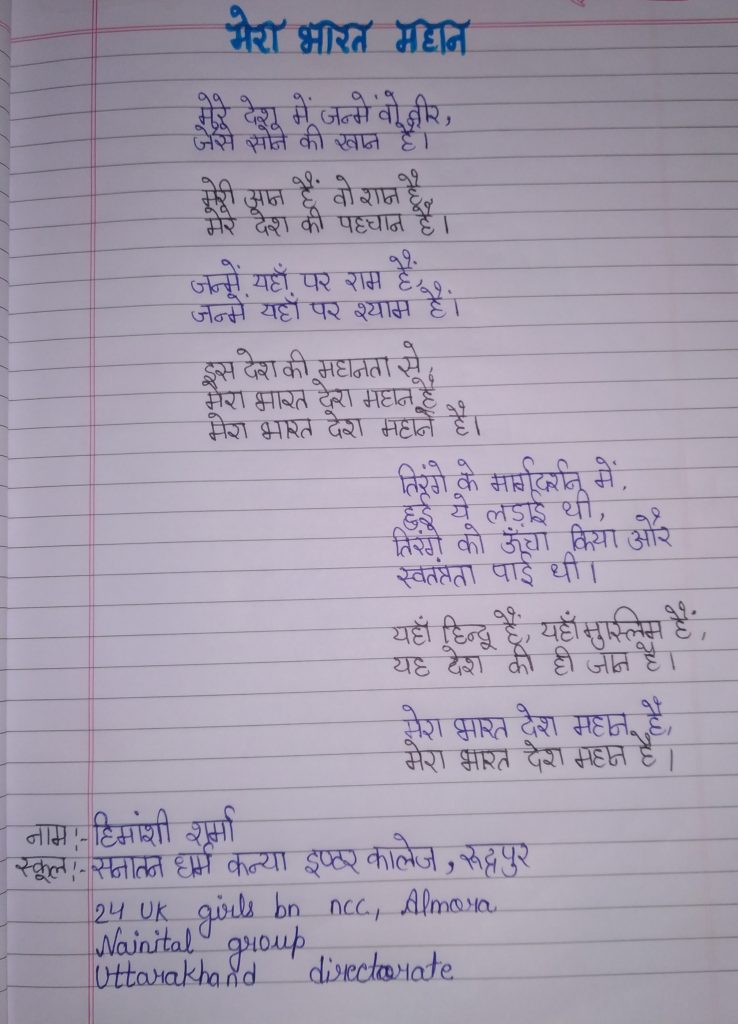 मेरा भारत महान
मेरे देश में जन्में वो वीर,
जैसे सोने की खान है।
मेरी आन हैं वो शान है,
मेरे देश की पहचान है।
जन्में यहाँ पर राम हैं,
जन्में यहाँ पर श्याम हैं।
इस देश की महानता से,
मेरा भारत देश महान है
मेरा भारत देश महान है।
तिरंगे के मार्गदर्शन में,
हुई ये लड़ाई थी,
तिरंगे को ऊँचा किया और
स्वतंत्रता पाई थी।
यहाँ हिन्दू हैं, यहाँ मुस्लिम हैं,
यह देश की ही जान है।
मेरा भारत देश महान है,
मेरा भारत देश महान है।
नाम:- हिमांशी शर्मा
स्कूल:- सनातन धर्म कन्या इण्टर कालेज, रूद्रपुर
24 UK girls bn ncc, Almora
Nainital group
Uttarakhand directorate